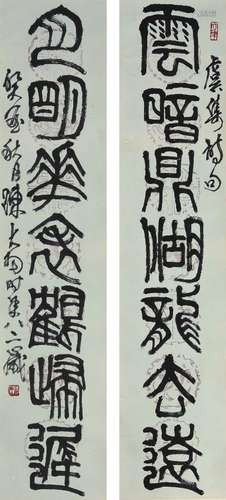 虞集詩句
雲暗鼎湖龍去遠
月明華表鶴歸遲
癸酉秋月陳大羽時年八二歲